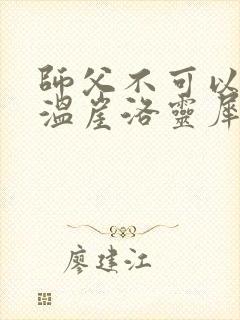 師父不可以
溫崖洛靈犀
廖建江